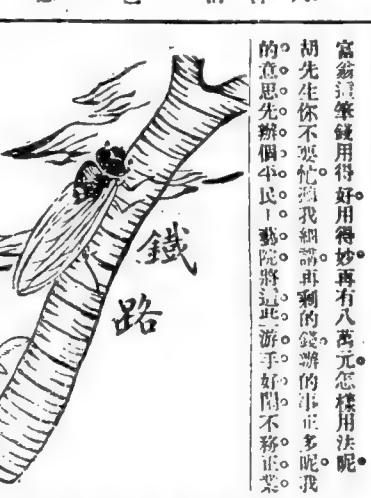 富翁這筆錢用得好用得妙再有八萬元怎樣用法呢
胡先生你不要忙聽我細講再剩的錢辦的事正多呢我
的意思先辦個平民工藝院將這些游手好閒不務正業
鐵路